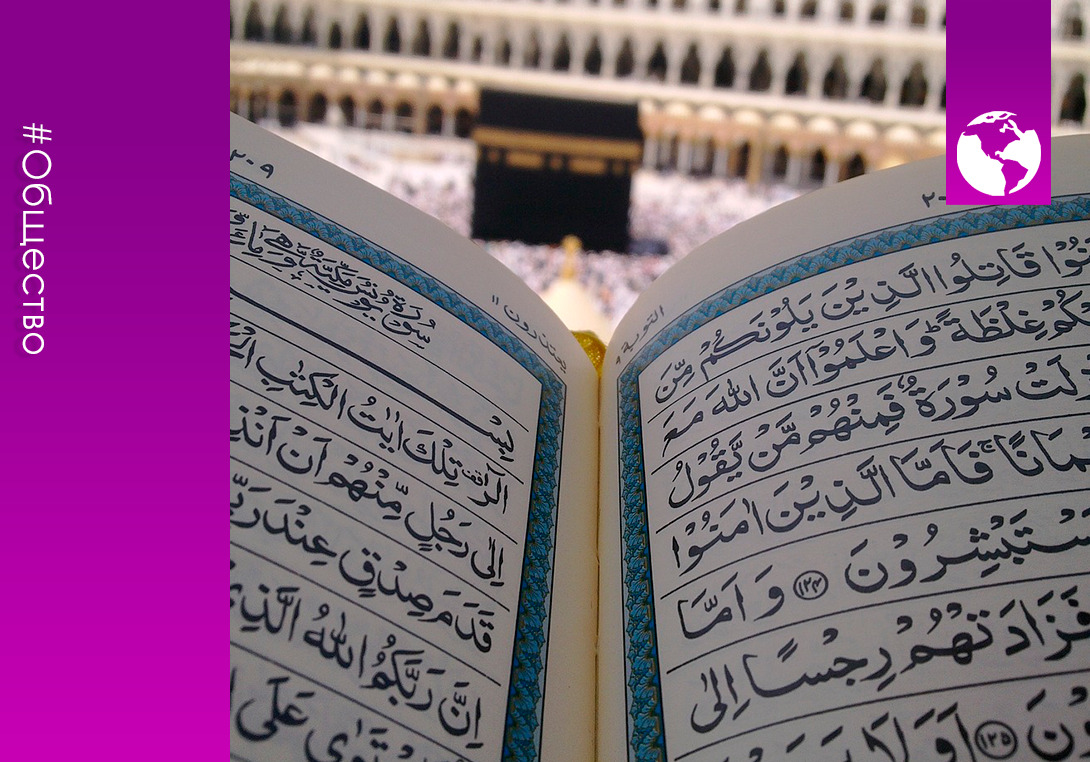 #Общество
التوبة ٩
قَاتِلُوا الَّذِيْنَ يَلُوْنَكُمْ مِّنَ
غِلْظَةً ؕ وَاعْلَمُوْۤا اَنَّ اللّٰهَ مَعَ
سُوْرَةٌ فَمِنْهُمْ مَّنْ يَّقُوْلُ
فَاَمَّا الَّذِيْنَ اٰمَنُوْا
يَسْتَبْشِرُوْنَ ١٢٤ وَ اَمَّا
فَزَادَتْهُمْ رِجْسًا اِلٰى
١٢٥ اَوَ لَا
٢٠٩
يعتذرون ١١
سُوْرَةُ يُوْنُسَ مَكِّيَّةٌ وَّهِيَ
الٓرٰ تِلْكَ اٰيٰتُ الْكِتٰبِ
اِلٰى رَجُلٍ مِّنْهُمْ اَنْ
قَدَمَ صِدْقٍ عِنْدَ
اِنَّ رَبَّكُمُ اللّٰهُ الَّذِيْ
عَلَى